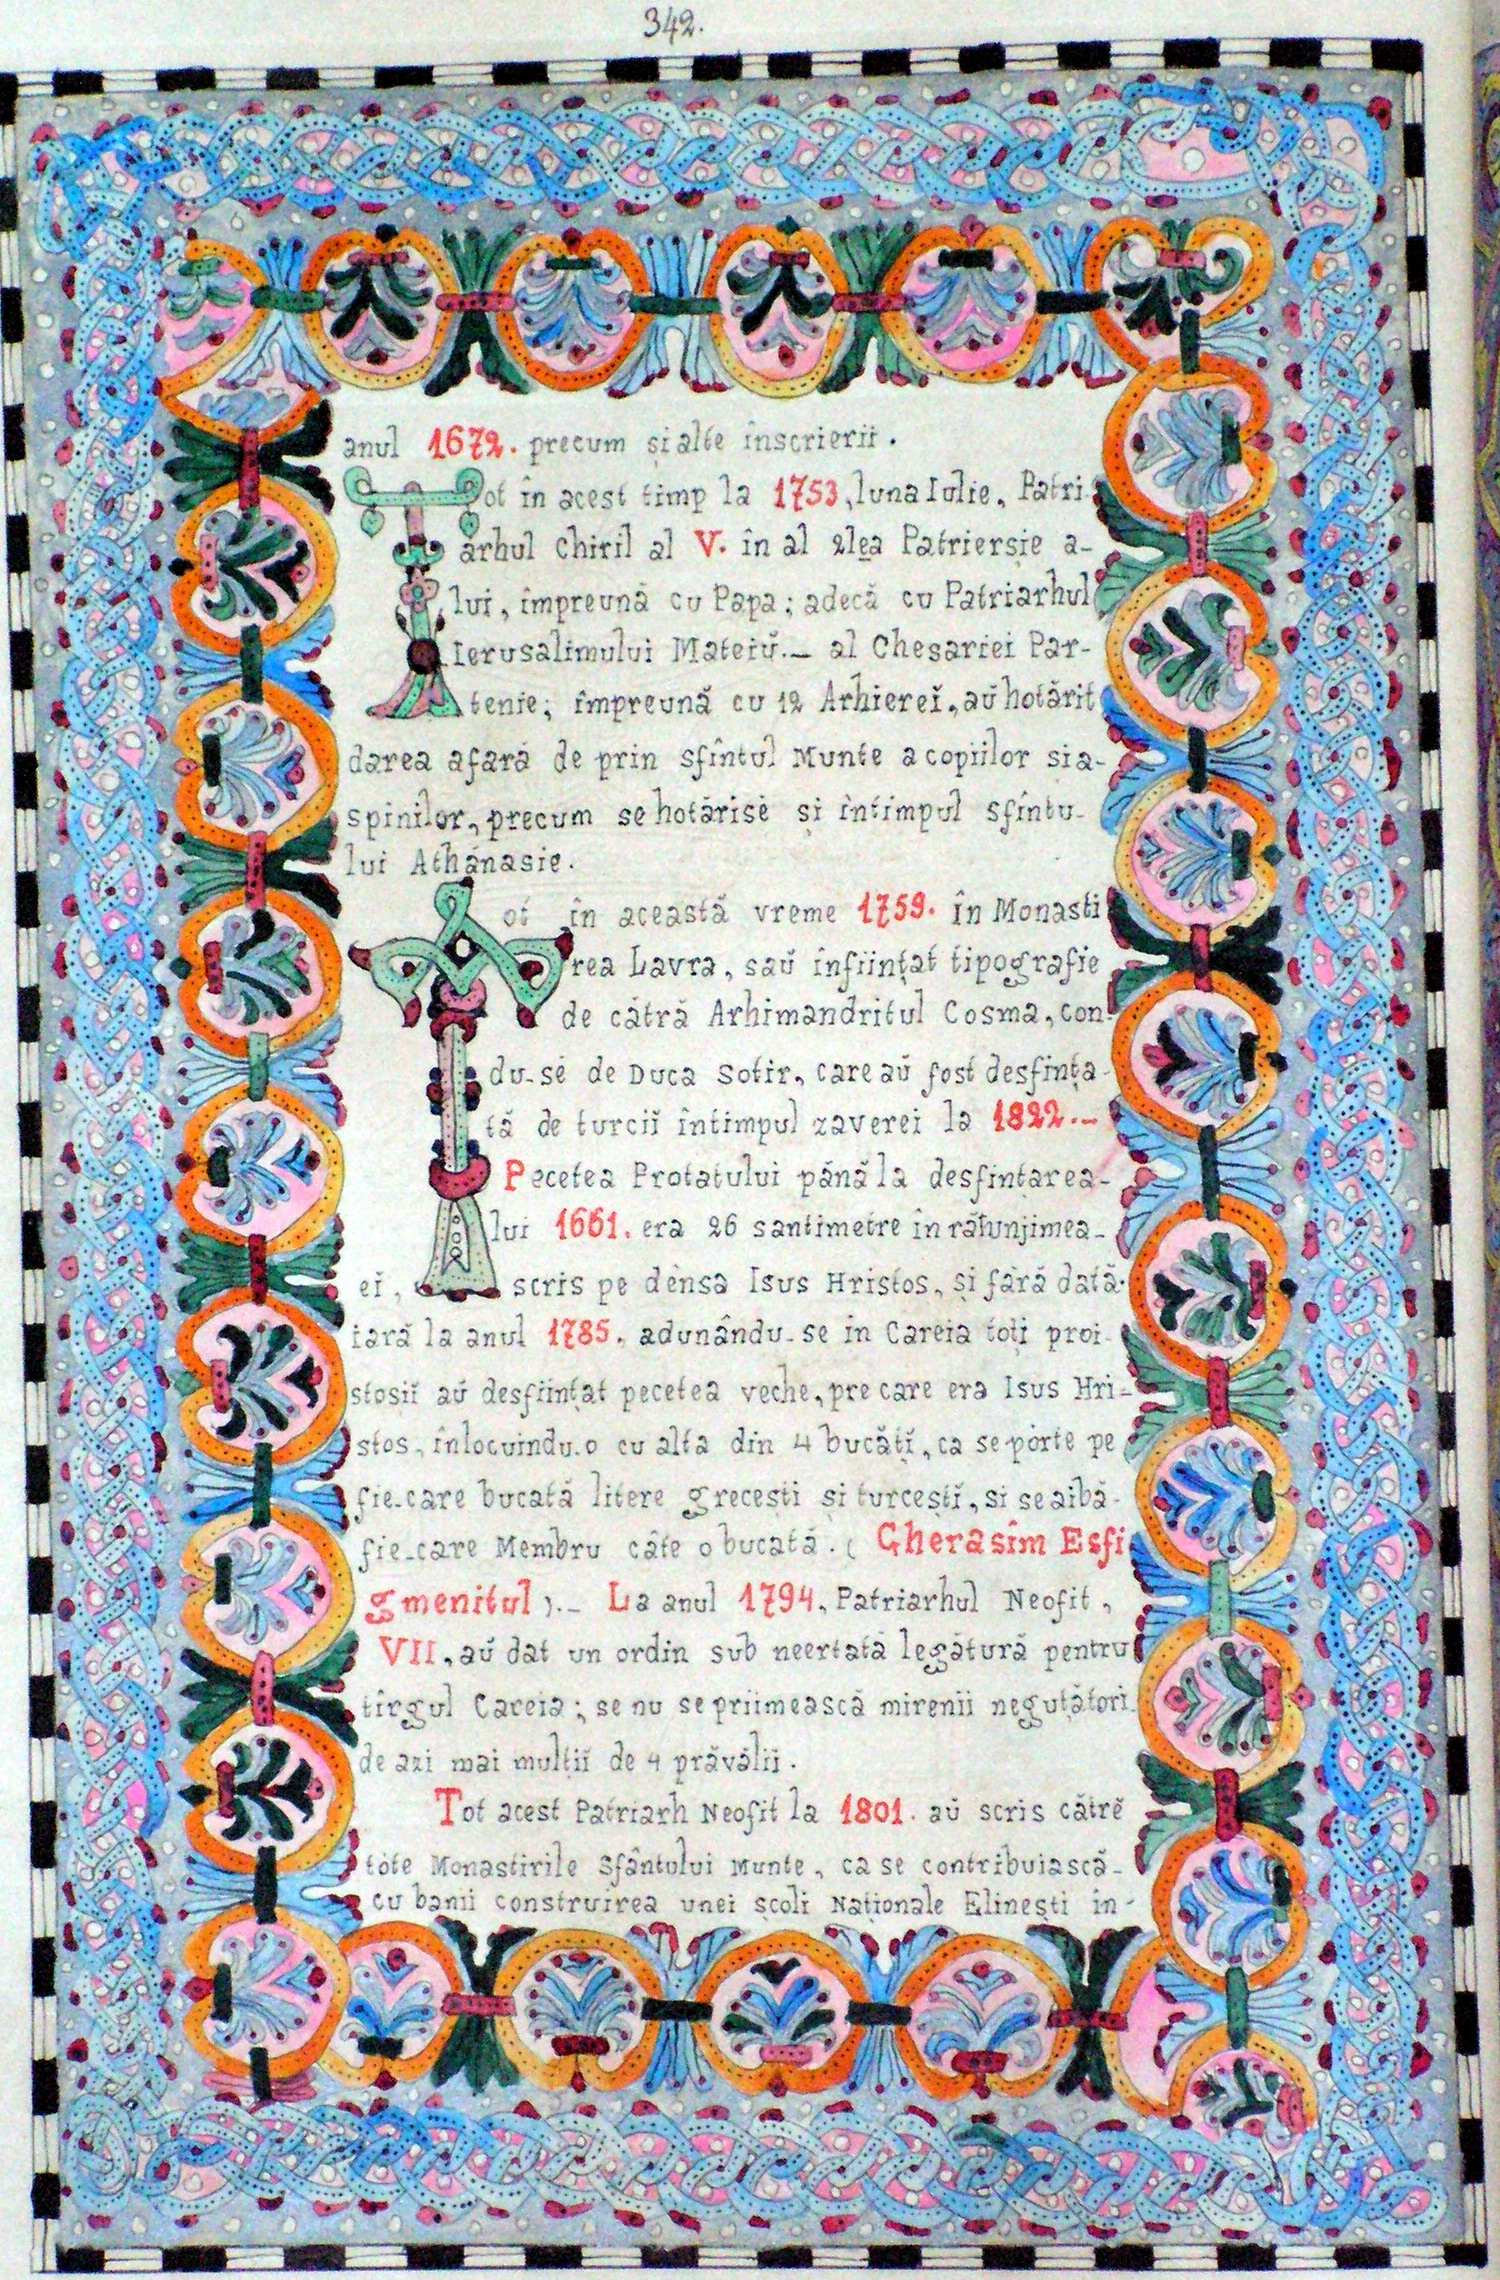 342.
anul 1672. precum și alte înscrierii.
Tot în acest timp la 1753, luna Iulie, Patri
arhul Chiril al V. în al 2lea Patriersie a-
lui, împreună cu Papa; adecă cu Patriarhul
Ierusalimului Mateiŭ._ al Chesariei Par-
tenie; împreună cu 12 Arhiereĭ, aŭ hotărit
darea afară de prin sfîntul Munte a copiilor si a-
spinilor, precum se hotărise și în timpul sfîntu-
lui Athanasie.
Tot în această vreme 1759. în Monasti
rea Lavra, saŭ înființat tipografie
de cătră Arhimandritul Cosma, con-
du-se de Duca Sotir, care aŭ fost desfința-
tă de turciĭ în timpul zaverei la 1822.-
Pecetea Protatului pănă la desfințarea-
lui 1661. era 26 santimetre în rătunjimea-
eĭ, scris pe dênsa Isus Hristos, și fără dată-
iară la anul 1785. adunându-se în Careia toți proi-
stosiĭ aŭ desființat pecetea veche, pre care era Isus Hri-
stos, înlocuindu-o cu alta din 4 bucățĭ, ca se pórte pe
fie-care bucată litere grecești și turceștĭ, si se aibă-
fie-care Membru câte o bucată. (Gherasîm Esfi
gmenitul)._ La anul 1794, Patriarhul Neofit,
VII, aŭ dat un ordin sub neertată legătură pentru
tîrgul Careia; se nu se priimească mirenii negutători
de azi mai mulțiĭ de 4 prăvălii.
Tot acest Patriarh Neofit la 1801. aŭ scris cătrĕ
tóte Monastirile Sfântului Munte, ca se contribuiască-
cu banii construirea unei școli Naționale Elinești în-